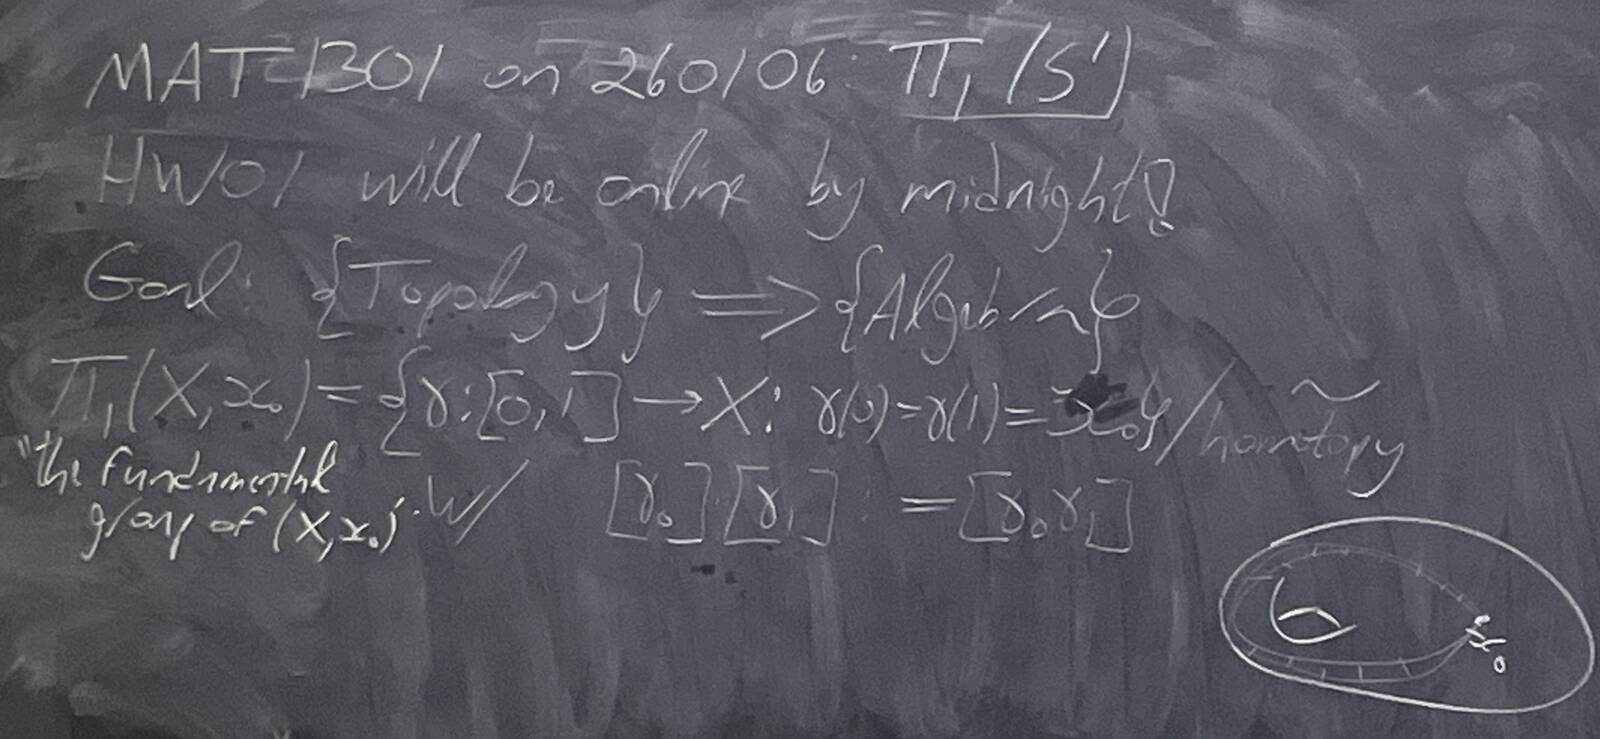 MAT 1301 on 260106: π₁(S¹)
HW01 will be online by midnight!
Goal: {Topology} ⟹ {Algebra}
π₁(X,x₀) = {γ:[0,1]→X: γ(0)=γ(1)=x₀}/homotopy ~
"the fundamental
group of (X,x₀)". w/ [γ₀]·[γ₁] := [γ₀γ₁]
x₀